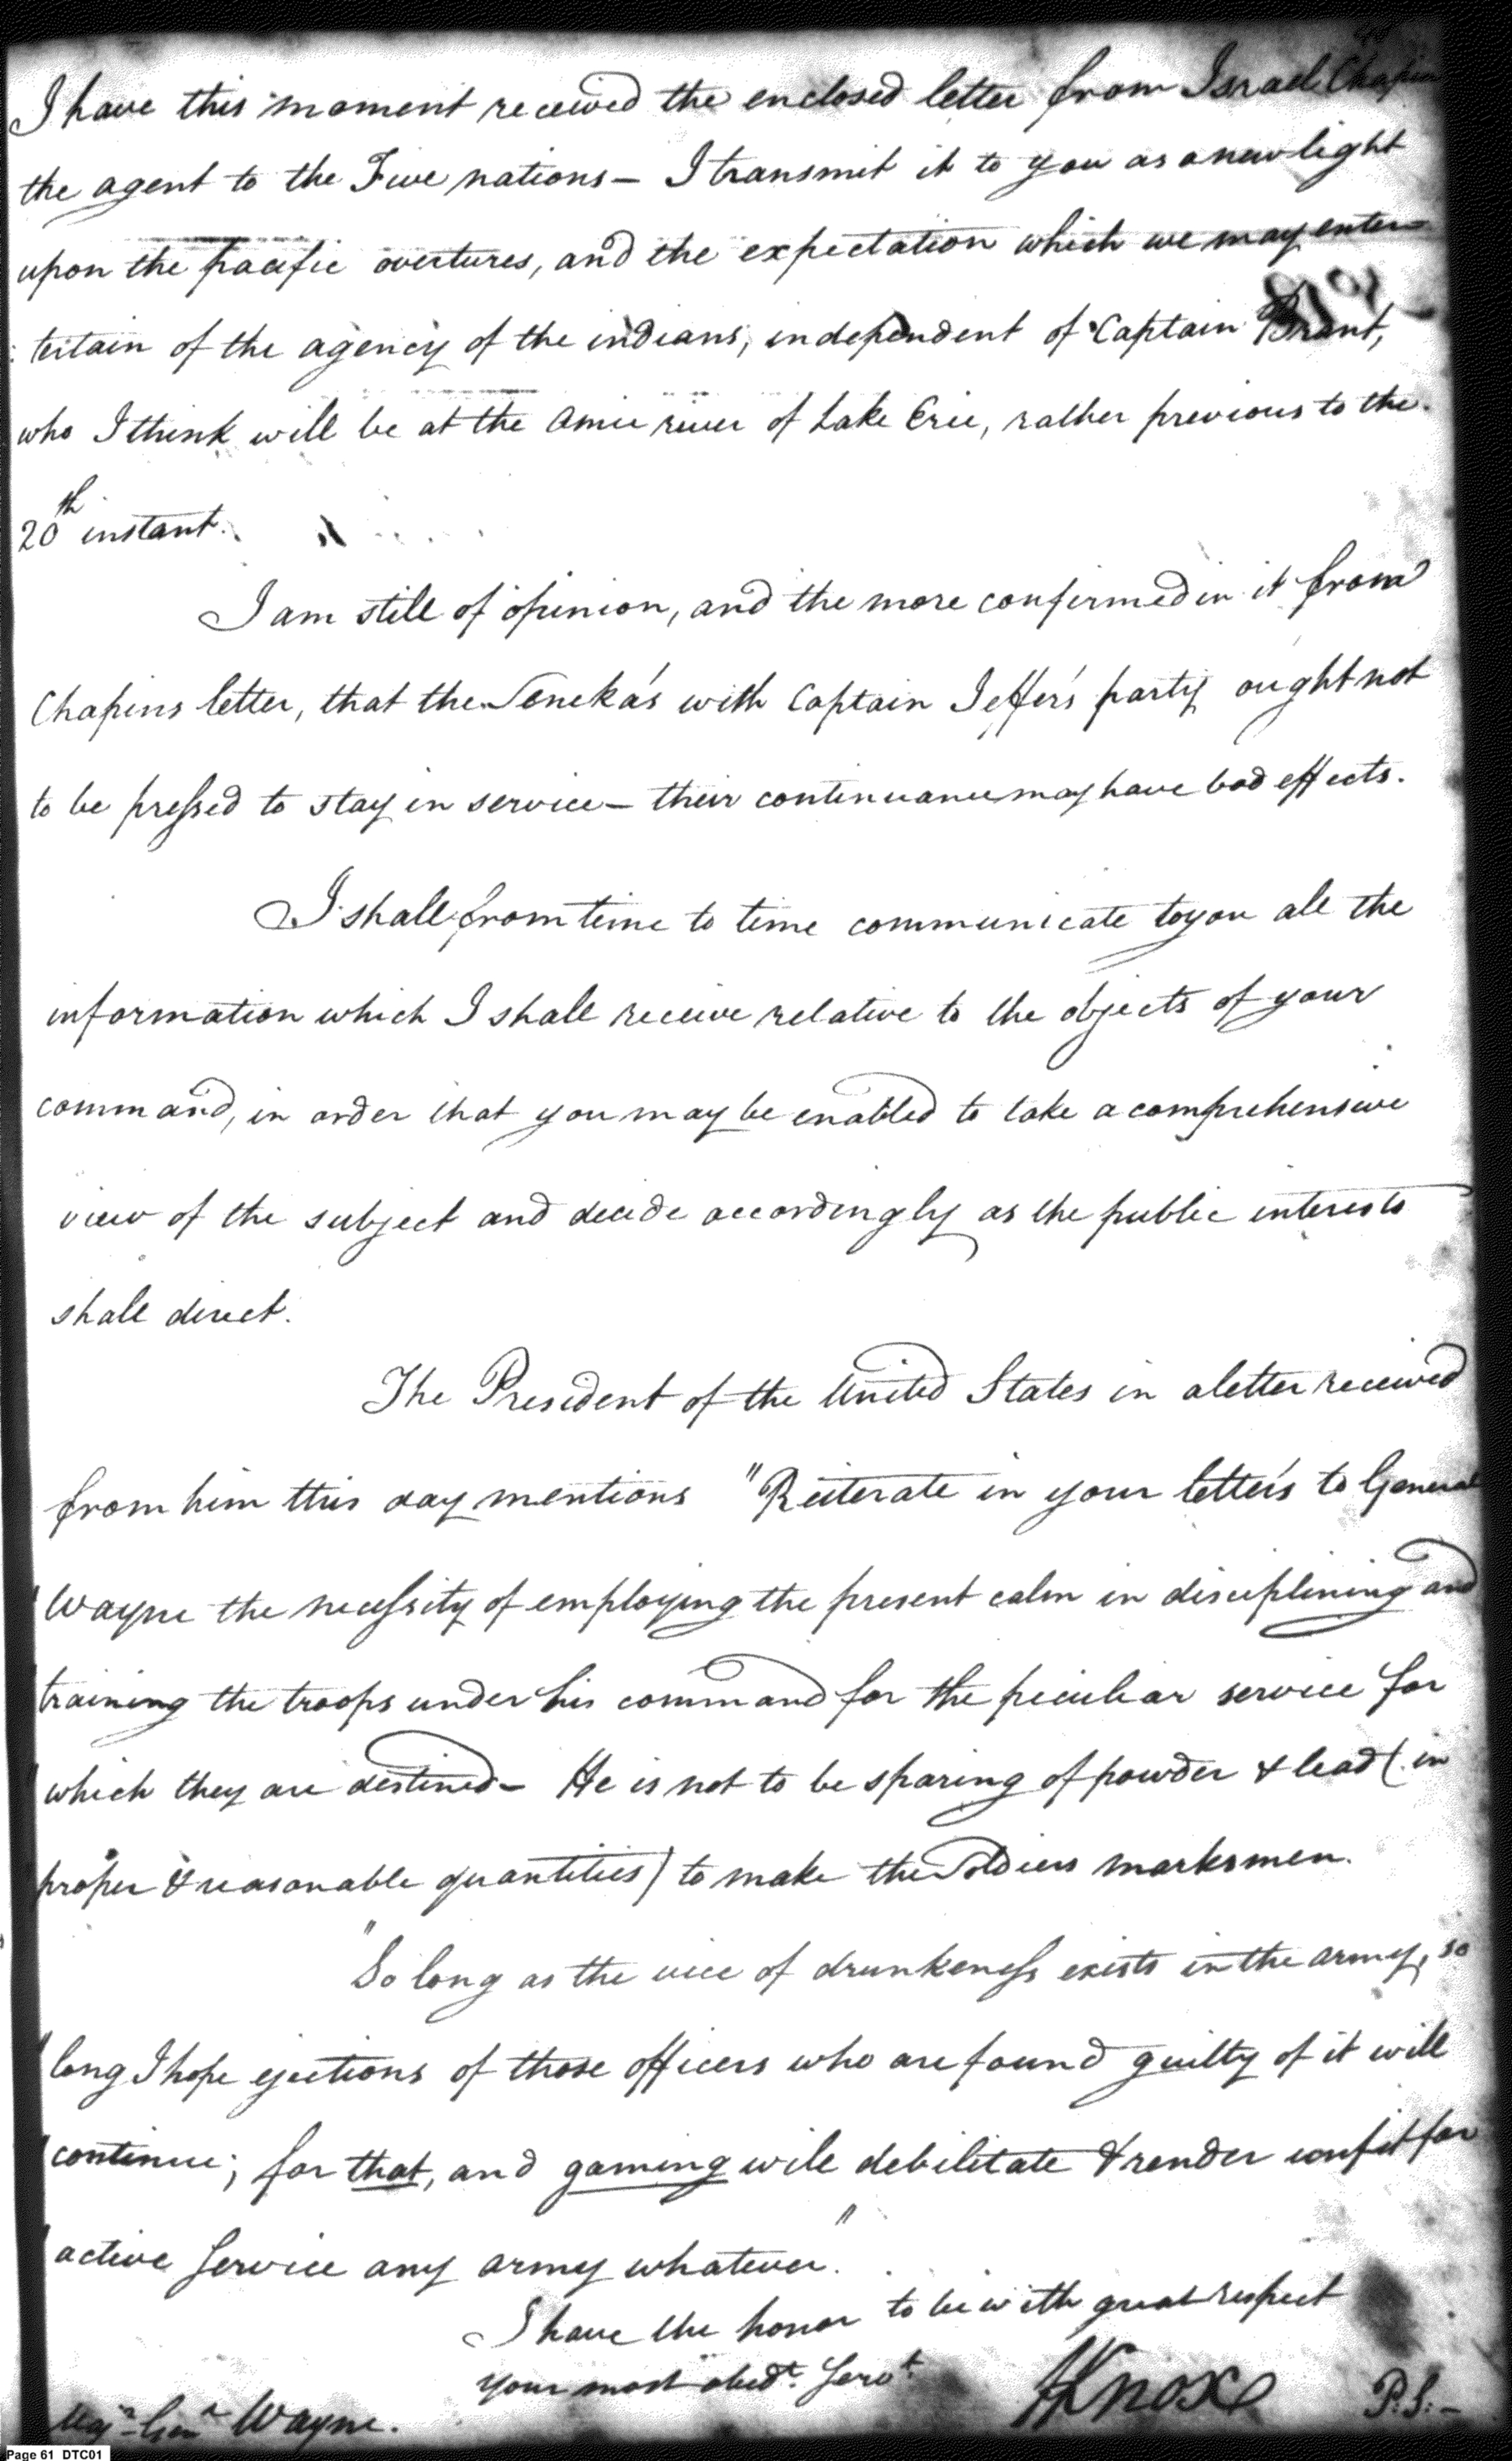 I have this moment received the enclosed letter from Israel Chapin
the agent to the Five nations — I transmit it to you as a new light
upon the pacific overtures, and the expectation which we may enter-
: tertain of the agency of the indians, independent of Captain Brant,
who I think will be at the Omie river of Lake Erie, rather previous to the
20th instant.
I am still of opinion, and the more confirmed in it from
Chapins letter, that the Seneka's with Captain Jeffer's party ought not
to be pressed to stay in service — their continuance may have bad effects.
I shall from time to time communicate to you all the
information which I shall receive relative to the objects of your
command, in order that you may be enabled to take a comprehensive
view of the subject and decide accordingly as the public interests
shall direct.
The President of the United States in a letter received
from him this day mentions "Reiterate in your letters to General
"Wayne the necessity of employing the present calm in disciplining and
"training the troops under his command for the peculiar service for
"which they are destined — He is not to be sparing of powder & lead (in
"proper & reasonable quantities) to make the Soldiers marksmen.
"So long as the vice of drunkeness exists in the army, so
"long I hope ejections of those officers who are found guilty of it will
"continue; for that, and gaming will debilitate & render unfit for
"active service any army whatever."
I have the honor to be with great respect
Your most obedt. Servt.
HKnox
P.S. —
Majr. Genl. Wayne.
Page 61 DTC01